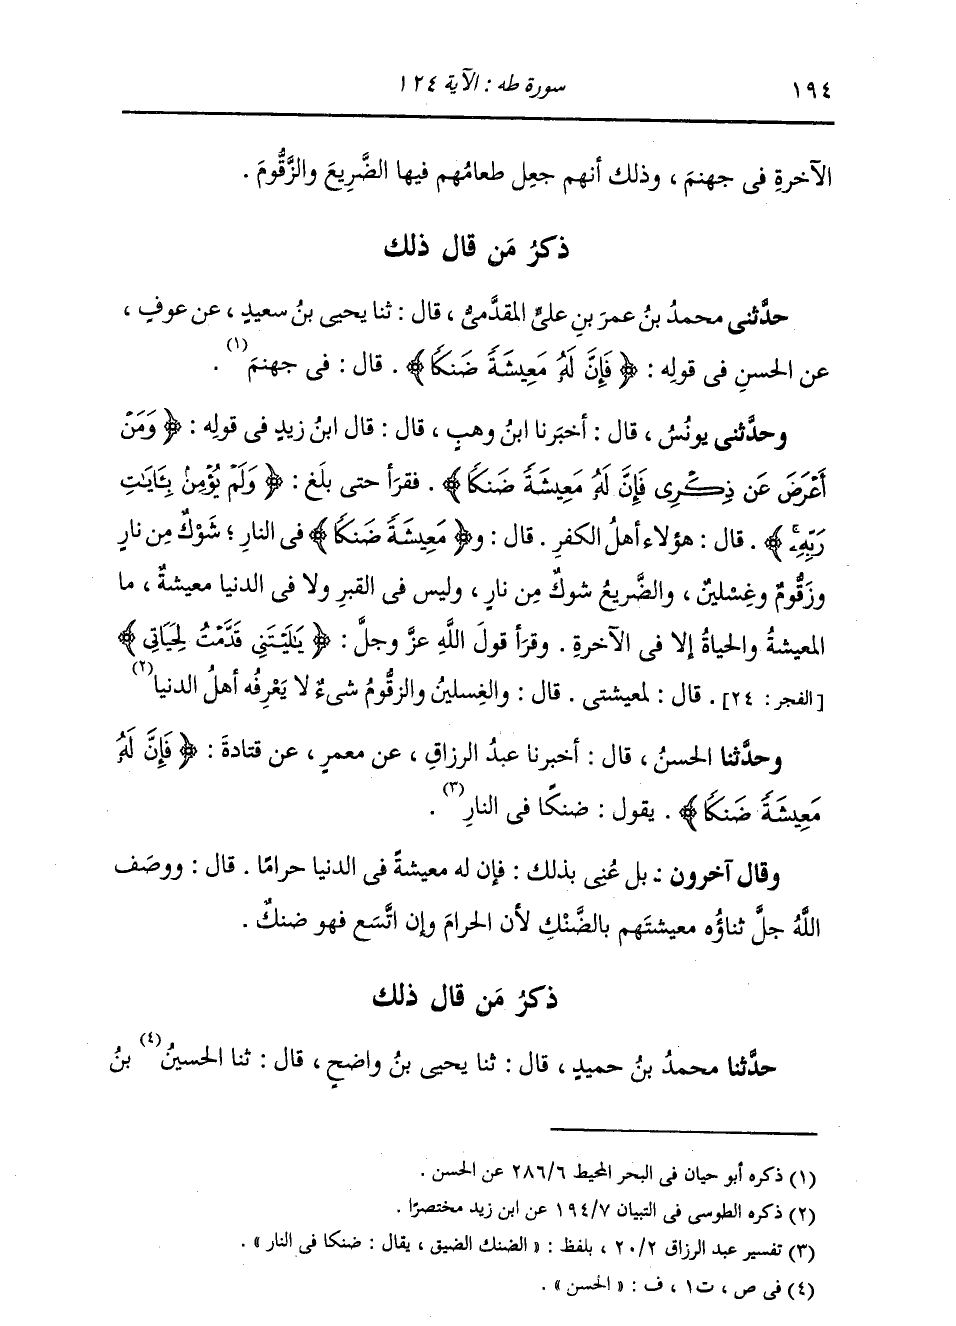 ١٩٤ سورة طه : الآية ١٢٤
الآخرةِ فى جهنمَ ، وذلك أنهم جعِل طعامُهم فيها الضَّرِيعَ والزَّقُّومَ .
ذكرُ مَن قال ذلك
حدَّثنى محمدُ بنُ عمرَ بنِ علىٍّ المقدَّمىُّ ، قال : ثنا يحيى بنُ سعيدٍ ، عن عوفٍ ،
عن الحسنِ فى قولِه : ﴿ فَإِنَّ لَهُ مَعِيشَةً ضَنكًا ﴾ . قال : فى جهنمَ (١) .
وحدَّثنى يونُسُ ، قال : أخبَرنا ابنُ وهبٍ ، قال : قال ابنُ زيدٍ فى قولِه : ﴿ وَمَنْ
أَعْرَضَ عَن ذِكْرِى فَإِنَّ لَهُ مَعِيشَةً ضَنكًا ﴾ . فقرَأ حتى بلَغ : ﴿ وَلَمْ يُؤْمِنۢ بِـَٔايَـٰتِ
رَبِّهِۦ ﴾ . قال : هؤلاء أهلُ الكفرِ . قال : و﴿ مَعِيشَةً ضَنكًا ﴾ فى النارِ ؛ شَوْكٌ مِن نارٍ
وزَقُّومٌ وغِسْلينٌ ، والضَّريعُ شوكٌ مِن نارٍ ، وليس فى القبرِ ولا فى الدنيا معيشةٌ ، ما
المعيشةُ والحياةُ إلا فى الآخرةِ . وقرَأ قولَ اللَّهِ عزَّ وجلَّ : ﴿ يَـٰلَيْتَنِى قَدَّمْتُ لِحَيَاتِى ﴾
[الفجر : ٢٤] . قال : لمعيشتى . قال : والغِسلينُ والزقُّومُ شىءٌ لا يَعْرِفُه أهلُ الدنيا (٢)
وحدَّثنا الحسنُ ، قال : أخبرنا عبدُ الرزاقِ ، عن معمرٍ ، عن قتادةَ : ﴿ فَإِنَّ لَهُ
مَعِيشَةً ضَنكًا ﴾ . يقول : ضنكًا فى النارِ (٣) .
وقال آخرون : بل عُنِى بذلك : فإن له معيشةً فى الدنيا حرامًا . قال : ووصَف
اللَّهُ جلَّ ثناؤُه معيشتَهم بالضَّنْكِ لأن الحرامَ وإن اتَّسَع فهو ضنكٌ .
ذكرُ مَن قال ذلك
حدَّثنا محمدُ بنُ حميدٍ ، قال : ثنا يحيى بنُ واضحٍ ، قال : ثنا الحسينُ (٤) بنُ
(١) ذكره أبو حيان فى البحر المحيط ٢٨٦/٦ عن الحسن .
(٢) ذكره الطوسى فى التبيان ١٩٤/٧ عن ابن زيد مختصرًا .
(٣) تفسير عبد الرزاق ٢٠/٢ ، بلفظ : « الضنك الضيق ، يقال : ضنكا فى النار » .
(٤) فى ص ، ت١ ، ف : « الحسن » .